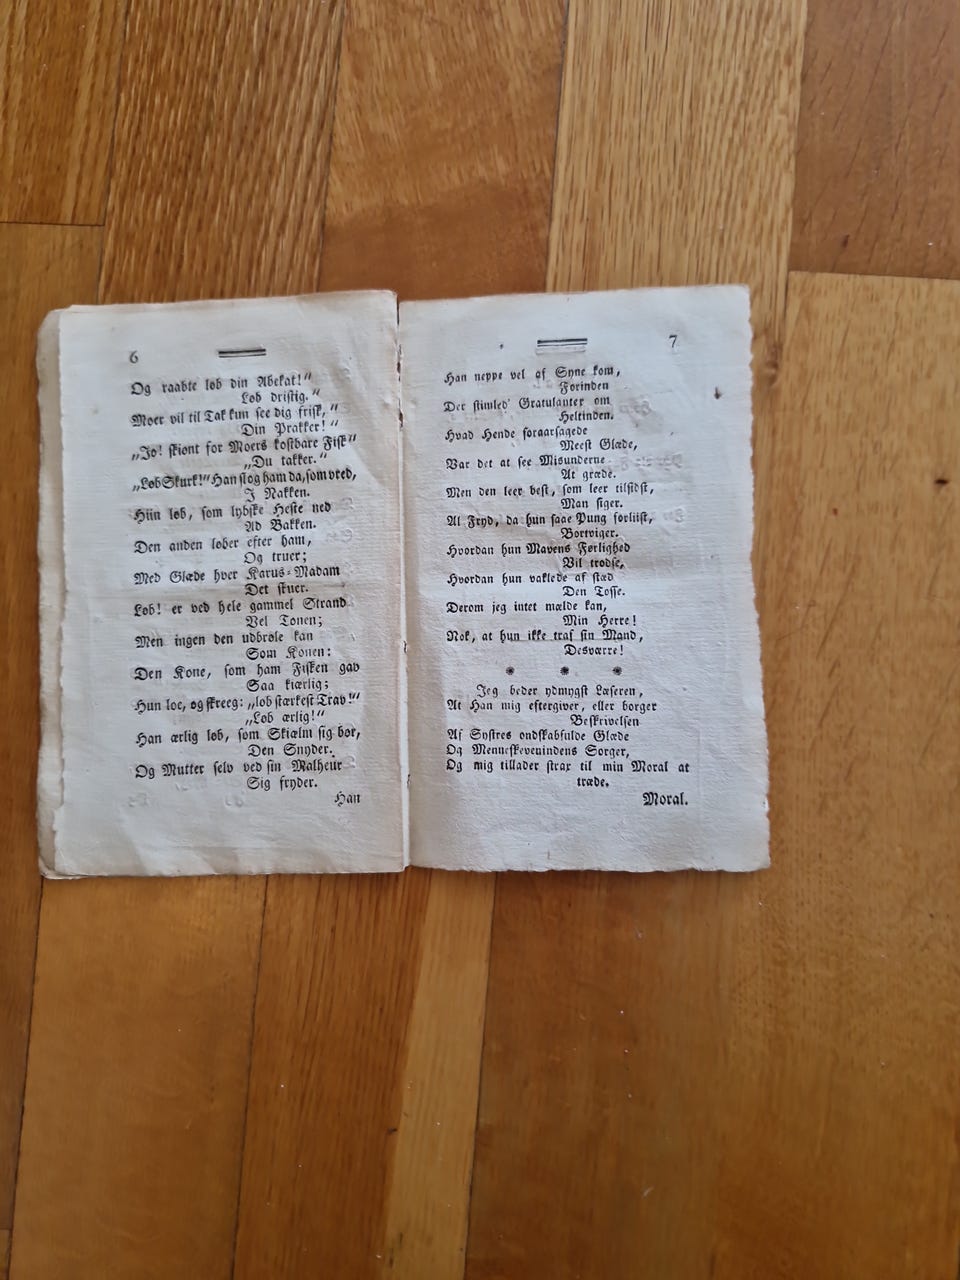 6
Og raabte løb din Abekat!“
Løb dristig.“
Moer vil til Tak kun see dig frisk,“
Din Prakker!“
„Jo! skiønt for Moers kostbare Fisk“
„Du takker.“
„Løb Skurk!“ Han slog ham da, som vred,
I Nakken.
Hiin løb, som lybske Heste ned
Ad Bakken.
Den anden løber efter ham,
Og truer;
Med Glæde hver Karus-Madam
Det skuer.
Løb! er ved hele gammel Strand
Vel Tonen;
Men ingen den udbrøle kan
Som Konen:
Den Kone, som ham Fisken gav
Saa kiærlig;
Hun loe, og skreeg: „løb stærkest Trav!“
„Løb ærlig!“
Han ærlig løb, som Skiælm sig bør,
Den Snyder.
Og Mutter selv ved sin Malheur
Sig fryder.
Han
7
Han neppe vel af Syne kom,
Førinden
Der stimled' Gratulanter om
Heltinden.
Hvad Hende foraarsagede
Meest Glæde,
Var det at see Misunderne
At græde.
Men den leer best, som leer tilsidst,
Man siger.
Al Fryd, da hun saae Pung forliist,
Bortviger.
Hvordan hun Mavens Førlighed
Vil trodse,
Hvordan hun vaklede af stæd
Den Tosse.
Derom jeg intet mælde kan,
Min Herre!
Nok, at hun ikke traf sin Mand,
Desværre!
* * *
Jeg beder ydmygst Læseren,
At Han mig eftergiver, eller borger
Beskrivelsen
Af Systres ondskabfulde Glæde
Og Menneskevenindens Sorger,
Og mig tillader strax til min Moral at
træde.
Moral.